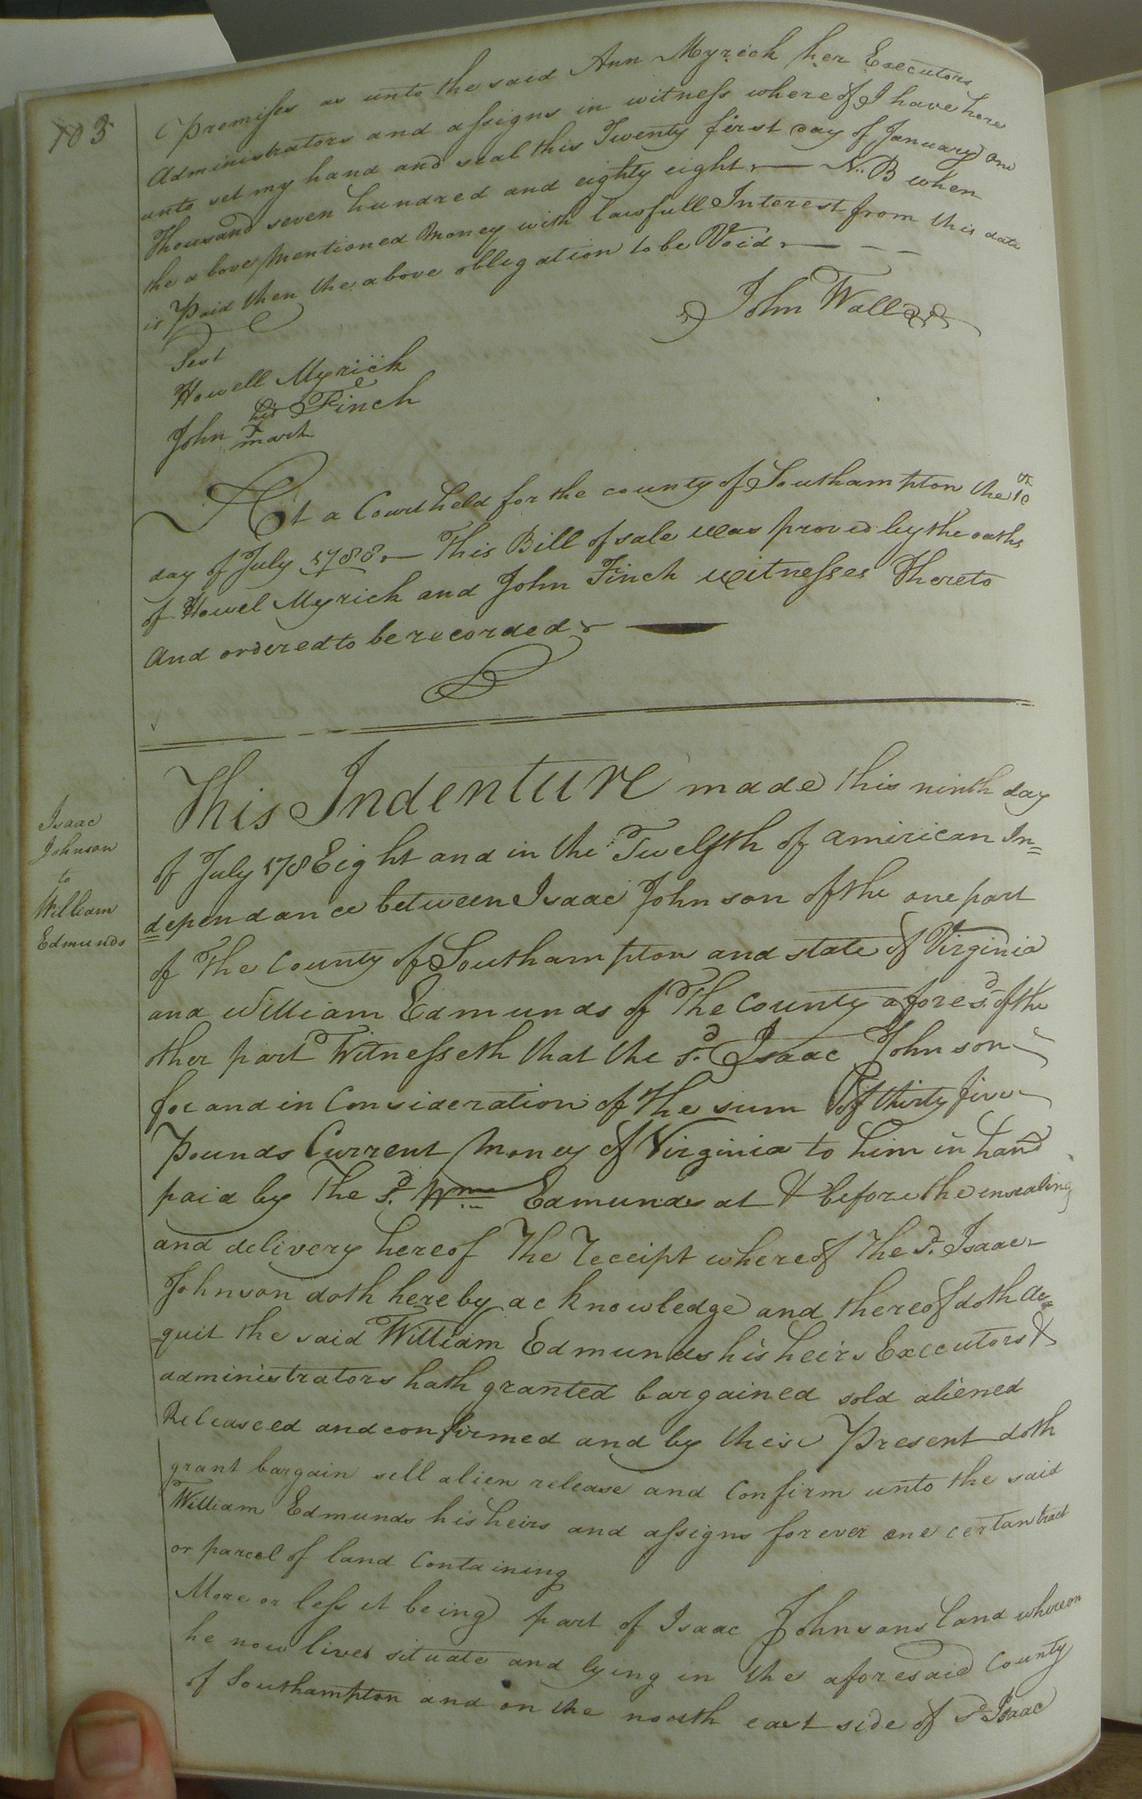 103
Premises as unto the said Ann Myrick her Executors
Administrators and assigns in witness whereof I have here
unto set my hand and seal this Twenty first day of January one
Thousand seven hundred and eighty eight — N.B when
the above mentioned Money with lawfull Interest from this date
is Paid then the above obligation to be Void — — —
John Wall
Test
Howell Myrick
John his Finch
X
mark
At a Court held for the county of Southampton the 10th
day of July 1788 — This Bill of sale was proved by the oaths
of Howel Myrick and John Finch witnesses Thereto
And ordered to be recorded
Isaac
Johnson
to
William
Edmunds
This Indenture made this ninth day
of July 178Eight and in the Twelfth of american In=
dependance between Isaac Johnson of the one part
of The County of Southampton and state of Virginia
and William Edmunds of The County afores.d of the
other part Witnesseth that the s.d Isaac Johnson
for and in Consideration of The sum of thirty five
Pounds Current Money of Virginia to him in hand
paid by The s.d Wm Edmunds at & before the ensealing
and delivery hereof The receipt whereof The s.d Isaac
Johnson doth hereby acknowledge and thereof doth Ac=
quit the said William Edmunds his heirs Executors &
administrators hath granted bargained sold aliened
Releaseed and confirmed and by these Present doth
grant bargain sell alien release and Confirm unto the said
William Edmunds his heirs and assigns forever one certan tract
or parcel of land Containing
More or less it being part of Isaac Johnsons land whereon
he now lives situate and lying in the aforesaid County
of Southampton and on the north east side of s.d Isaac